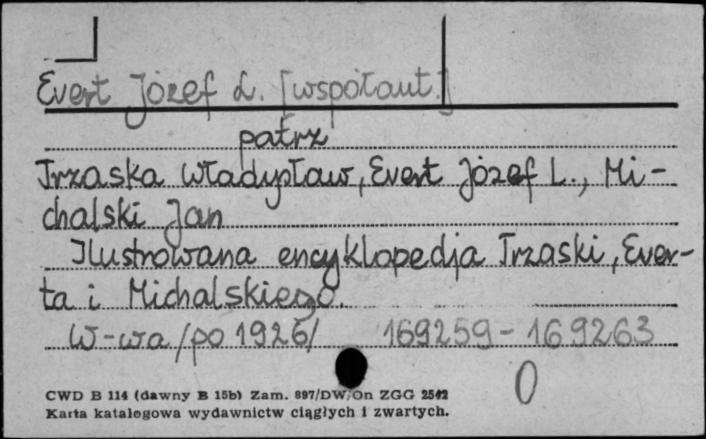 Evert Józef L. [współaut.]
patrz
Trzaska Władysław, Evert Józef L., Mi-
chalski Jan
Ilustrowana encyklopedja Trzaski, Ever-
ta i Michalskiego.
W-wa /po 1926/ 169259-169263
0
CWD B 114 (dawny B 15b) Zam. 897/DW/On ZGG 2542
Karta katalogowa wydawnictw ciągłych i zwartych.